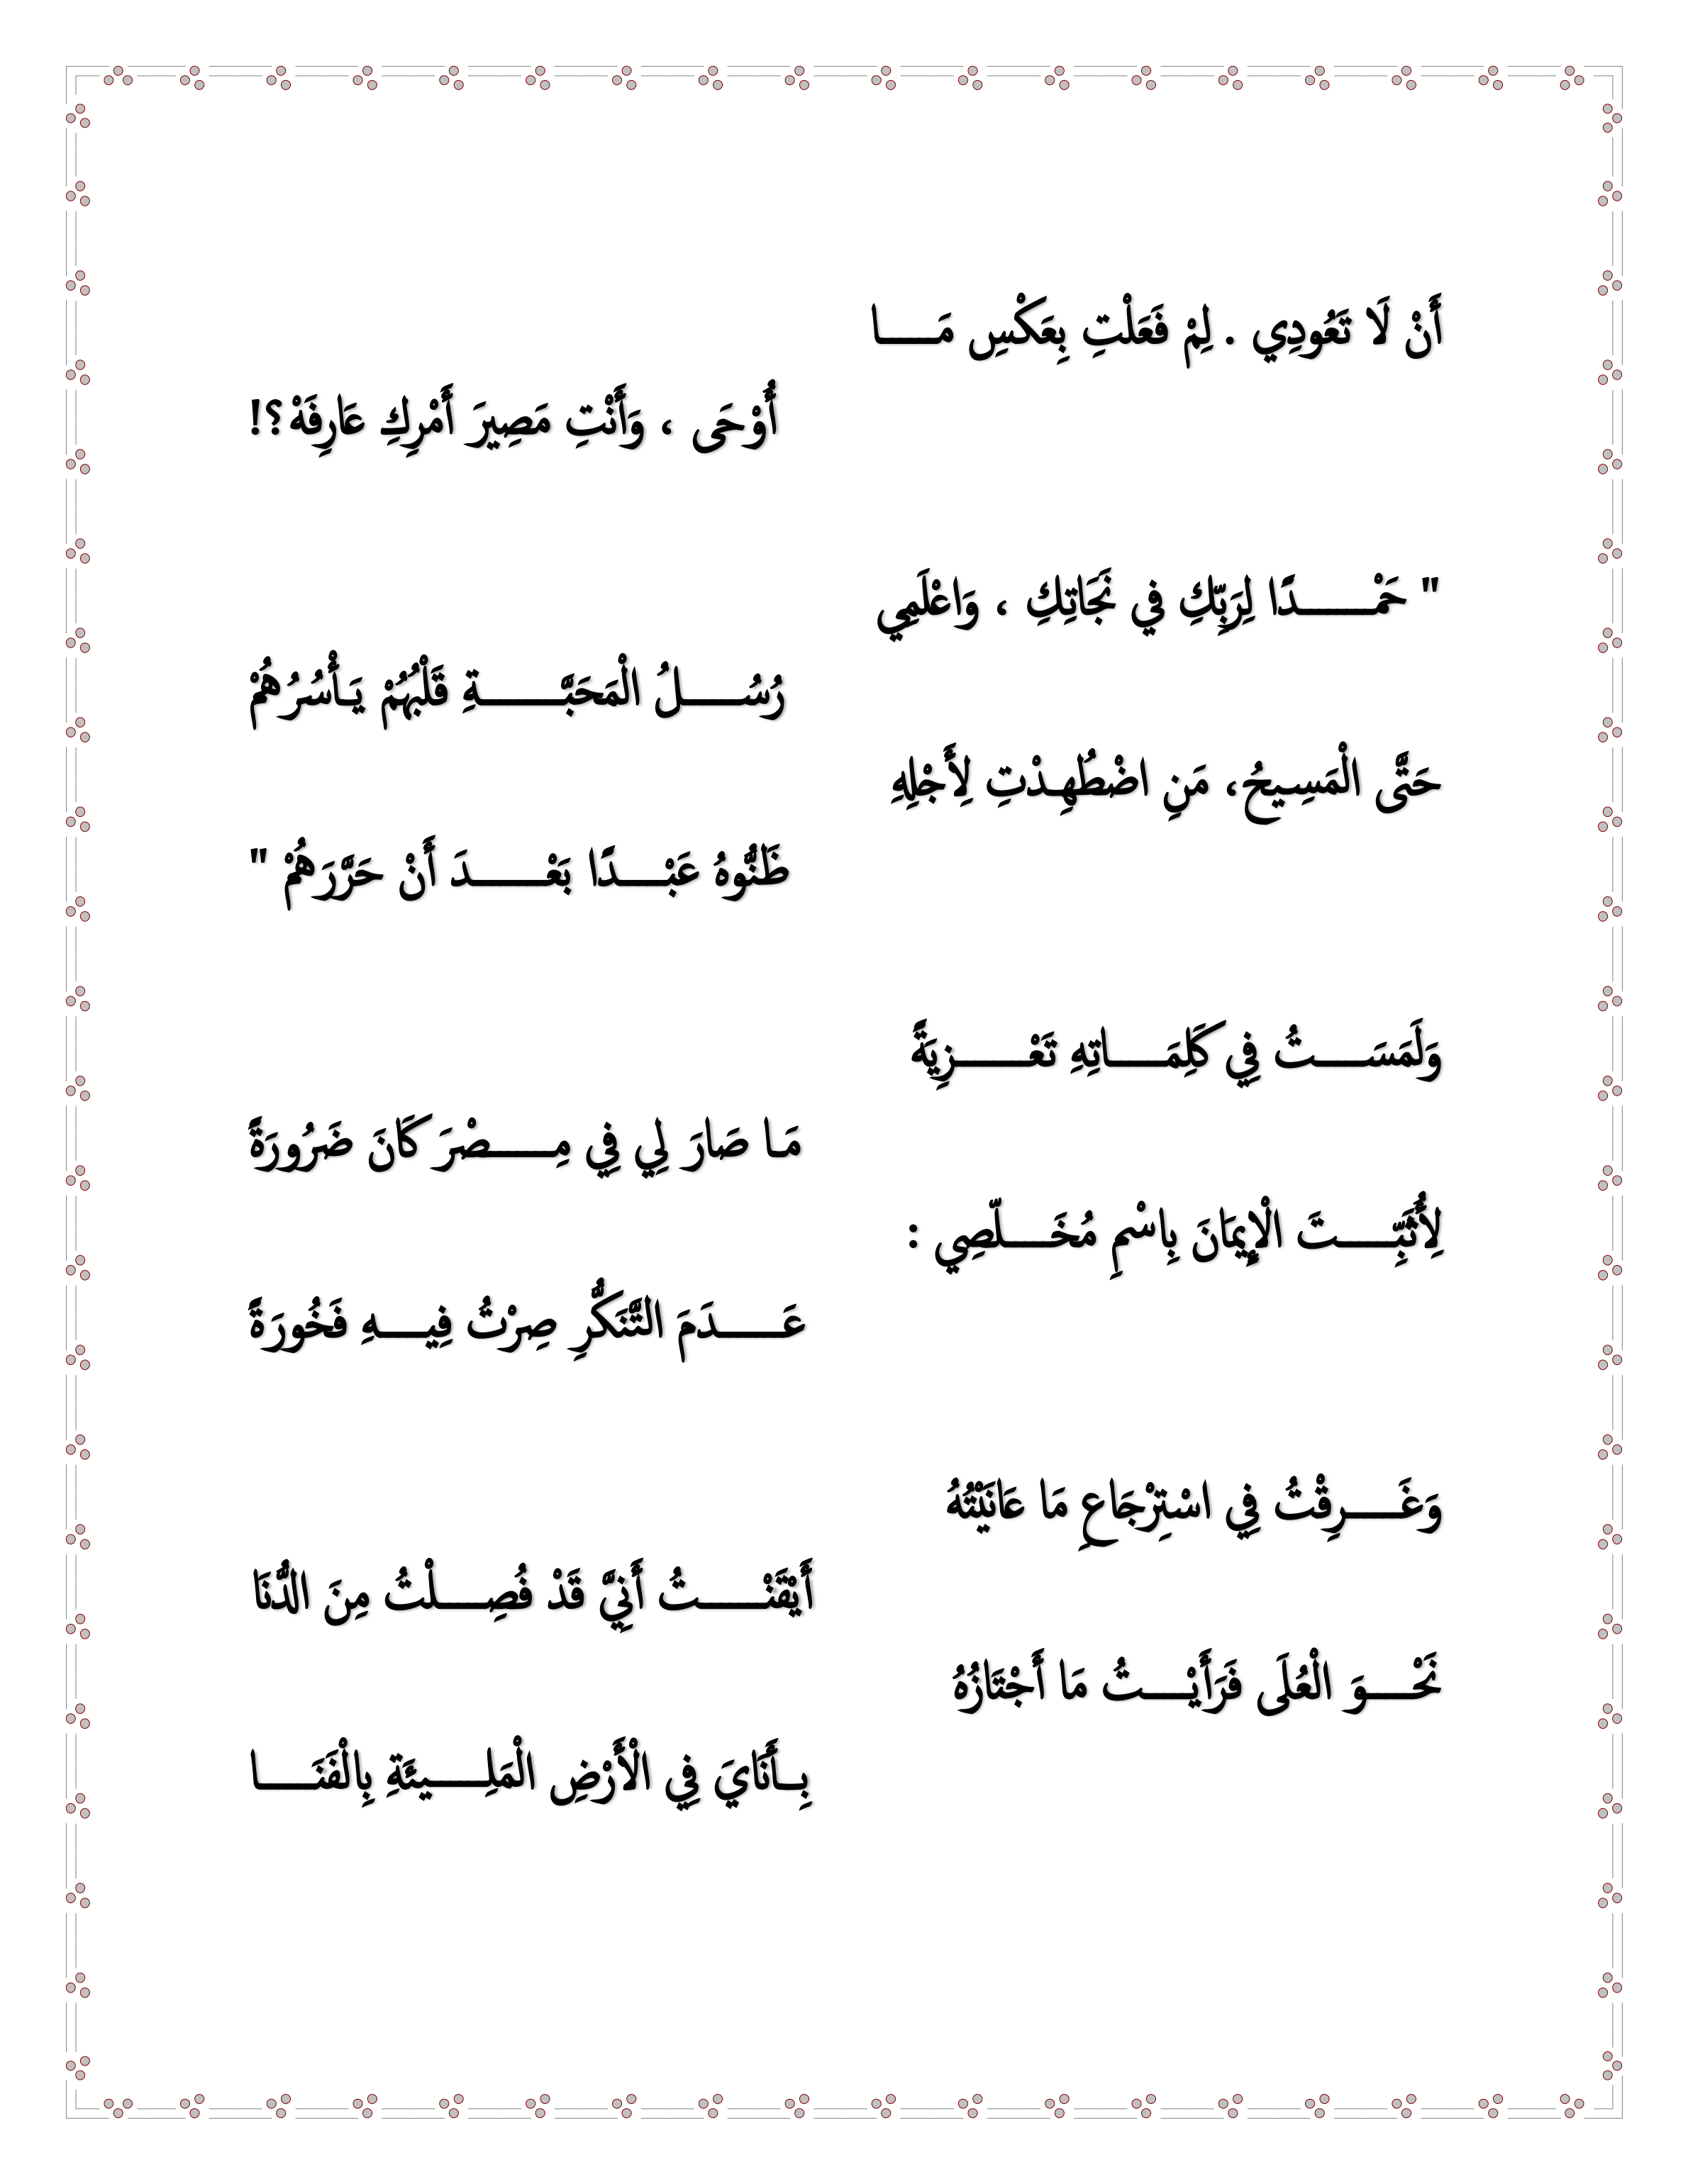 أَنْ لَا تَعُودِي . لِمْ فَعَلْتِ بِعَكْسِ مَـــــا
أَوْحَى ، وَأَنْتِ مَصِيرَ أَمْرِكِ عَارِفَهْ؟!
" حَمْـــــــدًا لِرَبِّكِ في نَجَاتِكِ ، وَاعْلَمِي
رُسُـــــلُ الْمَحَبَّــــــــةِ قَلْبُهُمْ يَـأْسُرُهُمْ
حَتَّى الْمَسِـيحُ، مَنِ اضْطُهِـدْتِ لِأَجْلِهِ
ظَنُّوهُ عَبْــــدًا بَعْـــــــدَ أَنْ حَرَّرَهُمْ "
وَلَمَسَـــــتُ فِي كَلِمَـــــاتِهِ تَعْـــــــــزِيَةً
مَـا صَارَ لِي فِي مِــــــصْرَ كَانَ ضَرُورَةً
لِأُثَبِّـــــتَ الْإِيمَانَ بِاسْمِ مُخَــــلّصِي :
عَــــــدَمَ التَّنَكُّرِ صِرْتُ فِيـــــهِ فَخُورَةً
وَغَـــــرِقْتُ فِي اسْتِرْجَاعِ مَا عَانَيْتُهُ
أَيْقَنْــــــتُ أَنِيَّ قَدْ فُصِـــــلْتُ مِنَ الدُّنَا
نَحْــــوَ الْعُلَى فَرَأَيْــــتُ مَا أَجْتَازُهُ
بِــأَنَايَ فِي الْأَرْضِ الْمَلِـــــيئَةِ بِالْفَنَـــــا